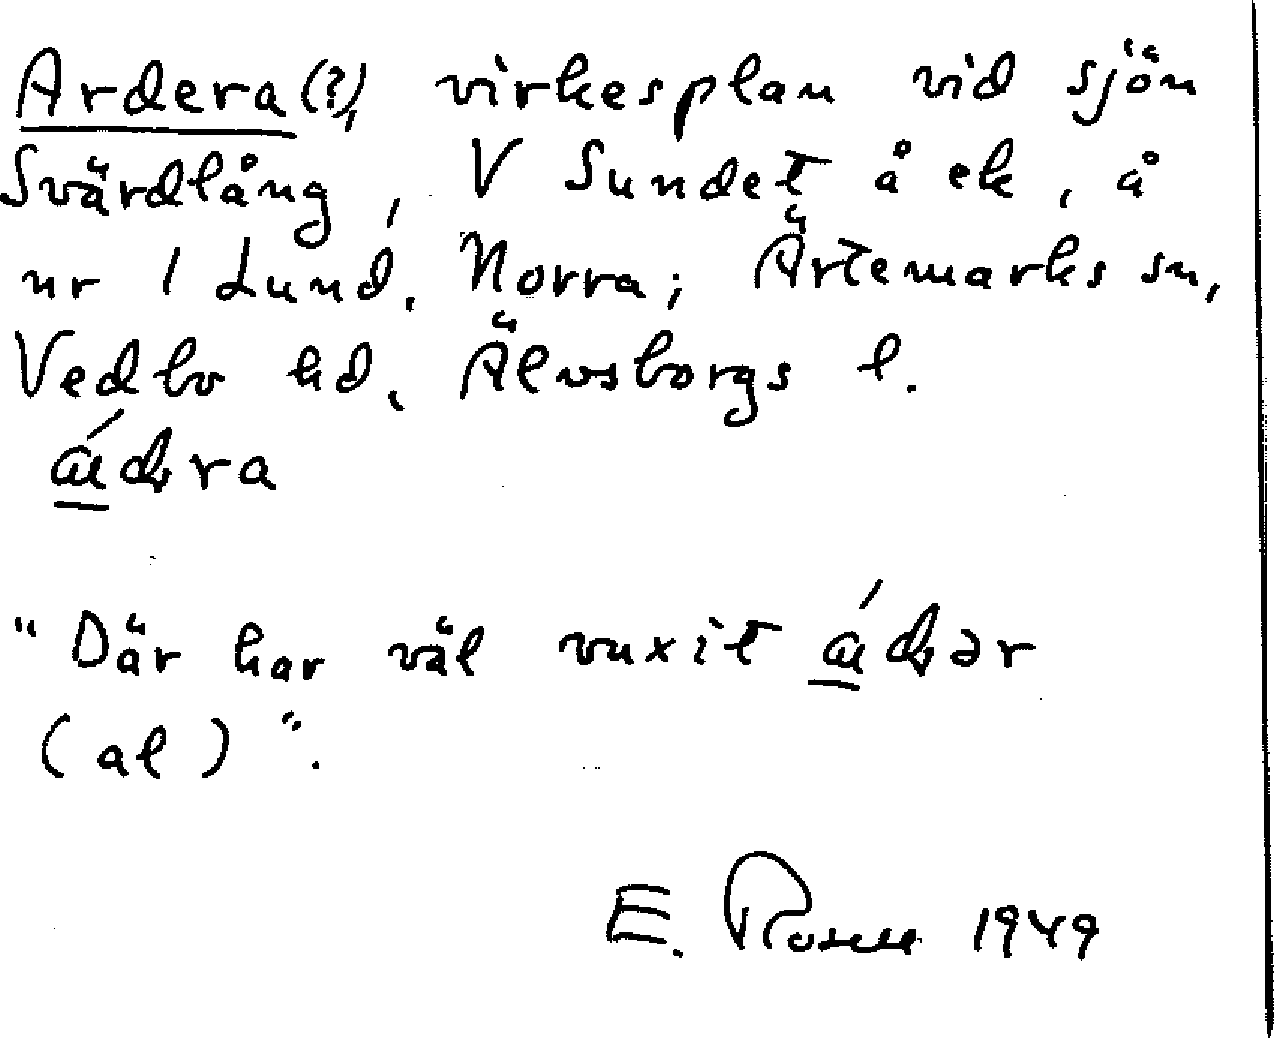 Ardera (?), virkesplan vid sjön
Svärdlång, V Sundet å ek, å
nr 1 Lund, Norra; Ärtemarks sn,
Vedbo hd, Älvsborgs l.
"Där har väl vuxit
(al)".
E. Rosell 1949